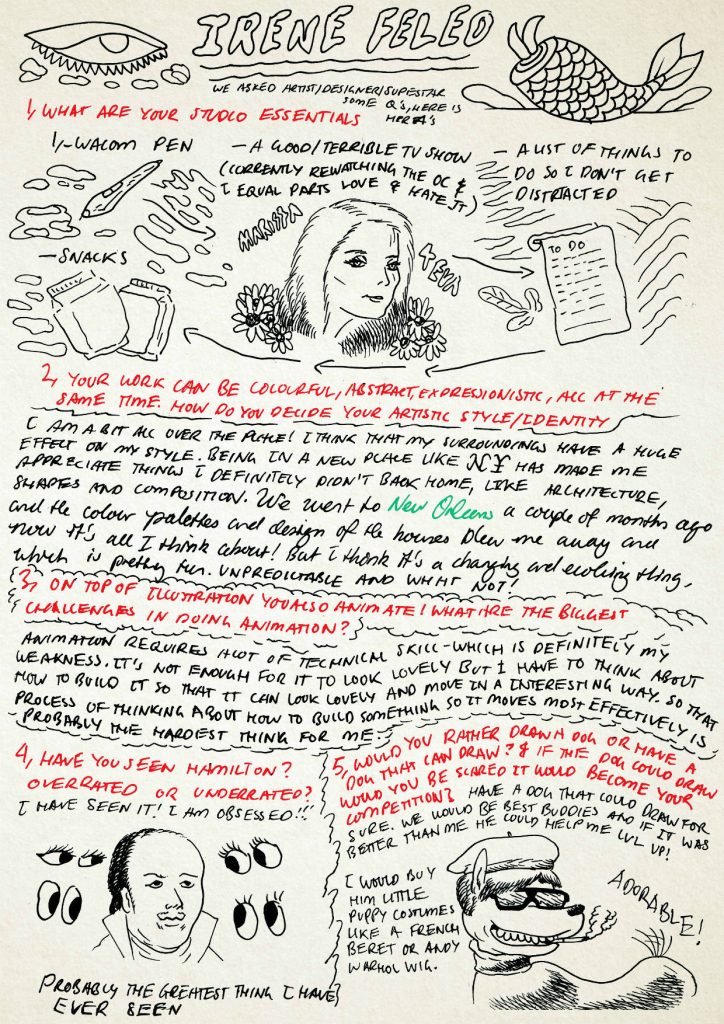 IRENE FELEO
WE ASKED ARTIST/DESIGNER/SUPESTAR
SOME Q's, HERE IS
HER A's
1, WHAT ARE YOUR STUDIO ESSENTIALS
1,-WACOM PEN
- A GOOD/TERRIBLE TV SHOW
(CORRENTLY REWATCHING THE OC &
I EQUAL PARTS LOVE & HATE IT)
- A LIST OF THINGS TO
DO SO I DON'T GET
DISTRACTED
MARISSA
4EVA
TO DO
-SNACKS
2, YOUR WORK CAN BE COLOURFUL, ABSTRACT, EXPRESSIONISTIC, ALL AT THE
SAME TIME. HOW DO YOU DECIDE YOUR ARTISTIC STYLE/IDENTITY
I AM A BIT ALL OVER THE PLACE! I THINK THAT MY SURROUNDINGS HAVE A HUGE
EFFECT ON MY STYLE. BEING IN A NEW PLACE LIKE NY HAS MADE ME
APPRECIATE THINGS I DEFINITELY DIDN'T BACK HOME, LIKE ARCHITECTURE,
SHAPES AND COMPOSITION. We went to New Orleans a couple of months ago
and the colour palettes and design of the houses blew me away and
now it's all I think about! But I think it's a changing and evolving thing,
which is pretty fun. UNPREDICTABLE AND WHAT NOT!
3, ON TOP OF ILLUSTRATION YOU ALSO ANIMATE! WHAT ARE THE BIGGEST
CHALLENGES IN DOING ANIMATION?
ANIMATION REQUIRES A LOT OF TECHNICAL SKILL - WHICH IS DEFINITELY MY
WEAKNESS. IT'S NOT ENOUGH FOR IT TO LOOK LOVELY BUT I HAVE TO THINK ABOUT
HOW TO BUILD IT SO THAT IT CAN LOOK LOVELY AND MOVE IN A INTERESTING WAY. SO THAT
PROCESS OF THINKING ABOUT HOW TO BUILD SOMETHING SO IT MOVES MOST EFFECTIVELY IS
PROBABLY THE HARDEST THING FOR ME.
4, HAVE YOU SEEN HAMILTON?
OVERRATED OR UNDERRATED?
I HAVE SEEN IT! I AM OBSESSED!!!
PROBABLY THE GREATEST THING I HAVE
EVER SEEN
5, WOULD YOU RATHER DRAW A DOG OR HAVE A
DOG THAT CAN DRAW? & IF THE DOG COULD DRAW
WOULD YOU BE SCARED IT WOULD BECOME YOUR
COMPETITION? HAVE A DOG THAT COULD DRAW FOR
SURE. WE WOULD BE BEST BUDDIES AND IF IT WAS
BETTER THAN ME HE COULD HELP ME LVL UP!
I WOULD BUY
HIM LITTLE
PUPPY COSTUMES
LIKE A FRENCH
BERET OR ANDY
WARHOL WIG.
ADORABLE!